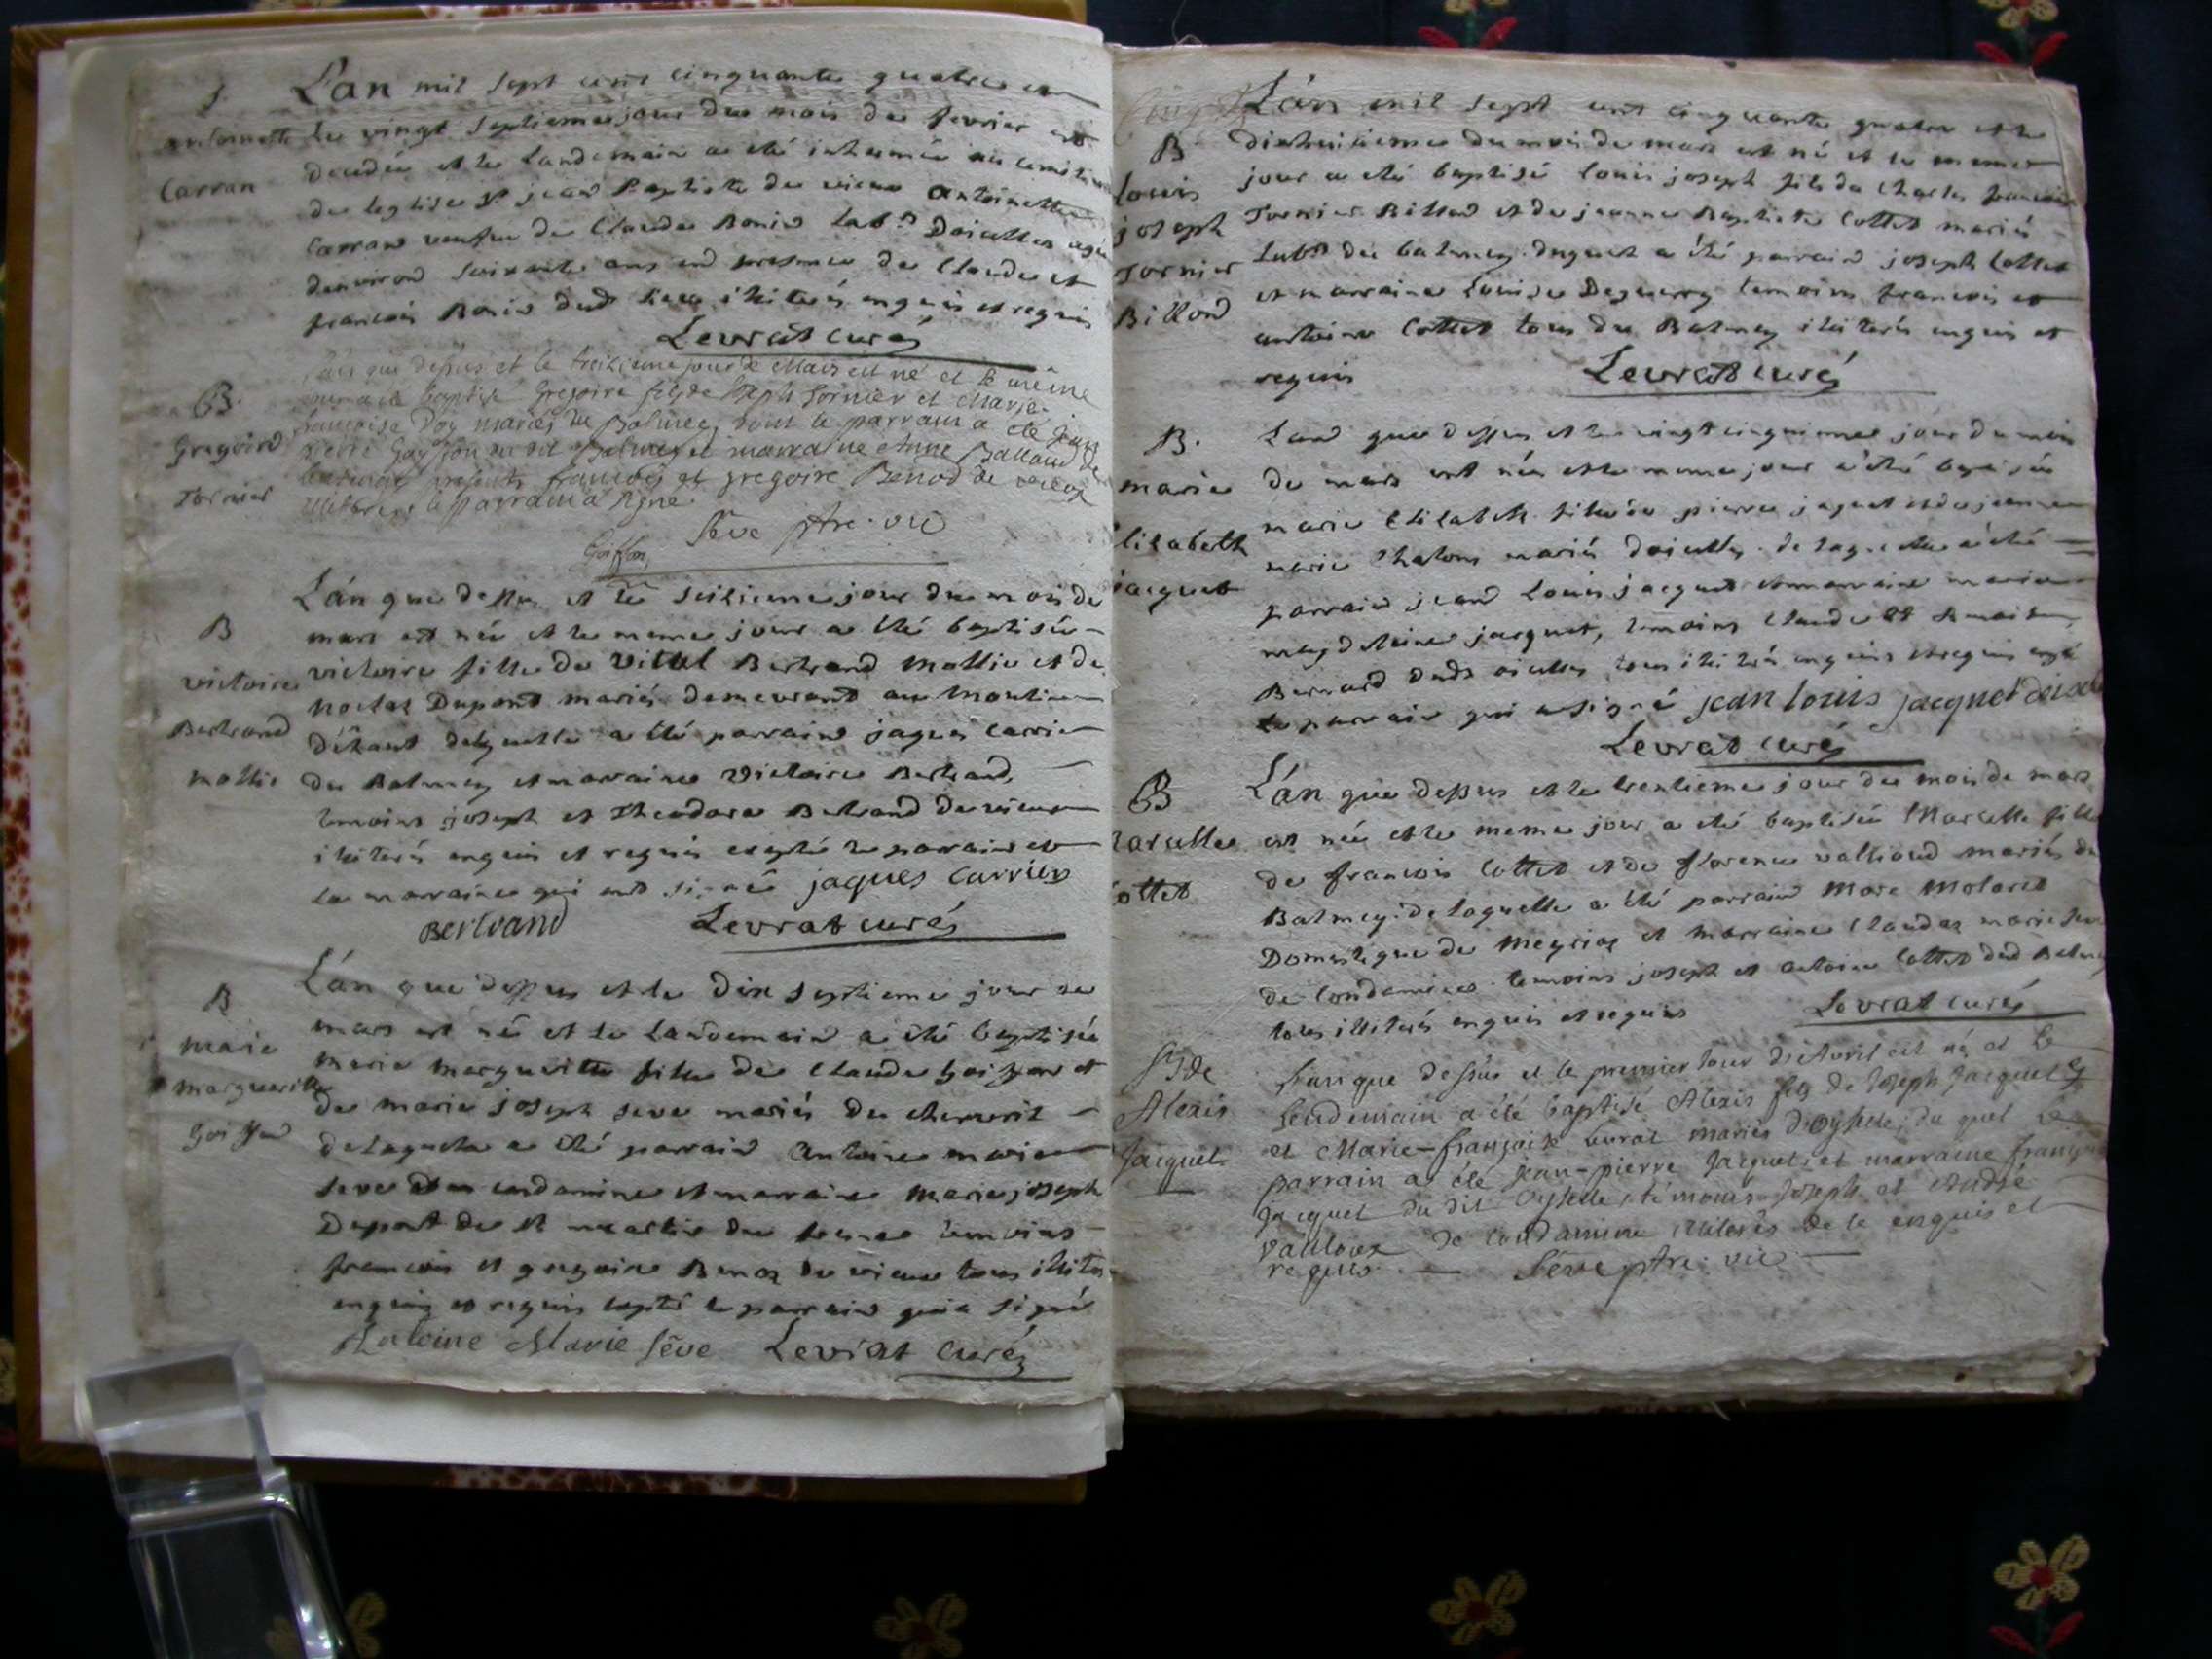 S.
antoinette
Carran
Lan mil sept cent cinquante quatre et
le vingt septieme jour du mois de fevrier est
decedée et le landemain a eté inhumée au cemitiere
de leglise St jean Baptiste de vieux antoinette
Carran veufve de Claude Bonin labr. Doiselles agée
denviron soixante ans en presence de Claude et
francois Bonin dud lieu illiterés enquis et requis
Levrat curé
B.
Gregoire
Tornier
l'an que dessus et le treizieme jour de Mars est né et le même
jour a été baptisé Gregoire fils de Joseph Tornier et Marie
françoise Doy mariés du Balmey, dont le parrain a été jean
pierre Goyffon du dit Balmey et marraine Anne Balland de
presents francois et gregoire Benod de vieux
illiteres le parrain a signé.
Sêve ptre. vic
Goiffon
B
victoire
Bertrand
mollie
Lán que dessus et le seizieme jour du mois de
mars est née et le meme jour a eté baptisée
victoire fille de Vital Bertrand Mollie et de
Dupont mariés demeurant au Moulin
Dékant delaquelle a eté parrain jaques Carrier
du Balmey et marraine victoire Bertrand,
temoins joseph et Theodore Bertrand de vieux
illiterés enquis et requis exepté le parrain et
la marraine qui ont signé jaques Carrier
Bertrand Levrat curé
B
marie
marguerite
Goiffon
Lán que dessus et le Dix septieme jour de
mars est né et le Landemain a eté baptisée
marie marguerite fille de Claude Goiffon et
de marie joseph seve mariés du chemeril
delaquelle a eté parrain antoine marie
seve de condamine et marraine marie joseph
Dupont de St martin du fresne temoins
francois et gregoire Benoz de vieux tous illiterés
enquis et requis exepté le parrain qui a signé
Antoine Marie Sêve Levrat curé
B
louis
joseph
Tornier
Billiond
Lán mil sept cent cinquante quatre et le
dixhuitieme du mois de mars est né et le meme
jour a eté baptisé louis joseph fils de Charles francois
Tornier Billiond et de jeanne Baptiste Cottet mariés
labr. du balmey. duquel a été parrain joseph Cottet
et marraine Louise Deguerry temoins francois et
antoine Cottet tous du Balmey illiterés enquis et
requis Levrat curé
B.
marie
Elizabeth
Jacquet
Lan que dessus et le vingt cinquieme jour du mois
de mars est née et le meme jour a été baptisée
marie Elizabeth fille de pierre jaquet et de jeanne
marie Chatons mariés doiselles. de laquelle a été
parrain jean Louis jacquet et marraine marie
magdeleine jacquet, temoins Claude et
Bernard dudt oiselles tous illiterés enquis et requis exepté
le parrain qui a signé jean louis jacquet doiselle
Levrat curé
B
Marcelle
Cottet
Lán que dessus et le trentieme jour du mois de mars
est née et le meme jour a eté baptisée Marcelle fille
de francois Cottet et de florence valliond mariés du
Balmey. de laquelle a été parrain Marc Molaret
Domestique de Meyriaz et marraine Claudaz marie Seve
de Condamine. temoins joseph et antoine Cottet dud Balmey
tous illiterés enquis et requis Levrat curé
Alexis
Jacquet
L'an que dessus et le premier jour d'Avril est né et le
Lendemain a été baptisé Alexis fils de Joseph Jacquet
et Marie-françoise Levrat mariés d'Oyselle; du quel
parrain a été Jean-pierre Jacquet, et marraine françoise
Jacquet du dit Oyselle, témoins Joseph et André
Vailloux de Condamine illiterés de ce enquis et
requis. Sêve ptre. vic